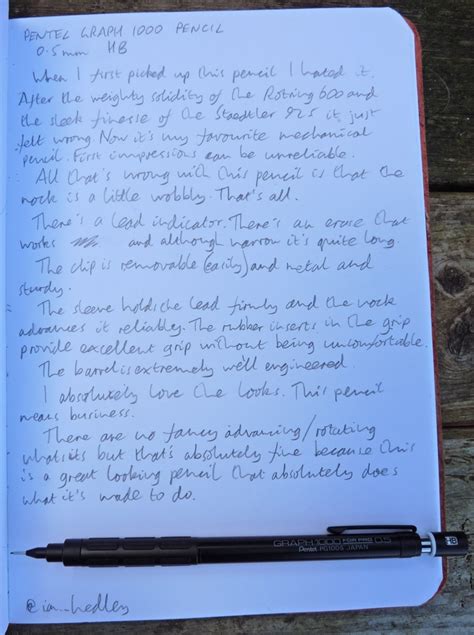 PENTEL GRAPH 1000 PENCIL
0.5mm HB
When I first picked up this pencil I hated it.
After the weighty solidity of the Rotring 600 and
the sleek finesse of the Staedtler 925 it just
felt wrong. Now it's my favourite mechanical
pencil. First impressions can be unreliable.
All that's wrong with this pencil is that the
nock is a little wobbly. That's all.
There's a lead indicator. There's an erase that
works and although narrow it's quite long.
The clip is removable (easily) and metal and
sturdy.
The sleeve holds the lead firmly and the nock
advances it reliably. The rubber inserts in the grip
provide excellent grip without being uncomfortable.
The barrel is extremely well engineered.
I absolutely love the looks. This pencil
means business.
There are no fancy advancing/rotating
whatsits but that's absolutely fine because this
is a great looking pencil that absolutely does
what it's made to do.
GRAPH 1000 FOR PRO 0.5
Pentel PG1005 JAPAN
HB
@ian_hedley